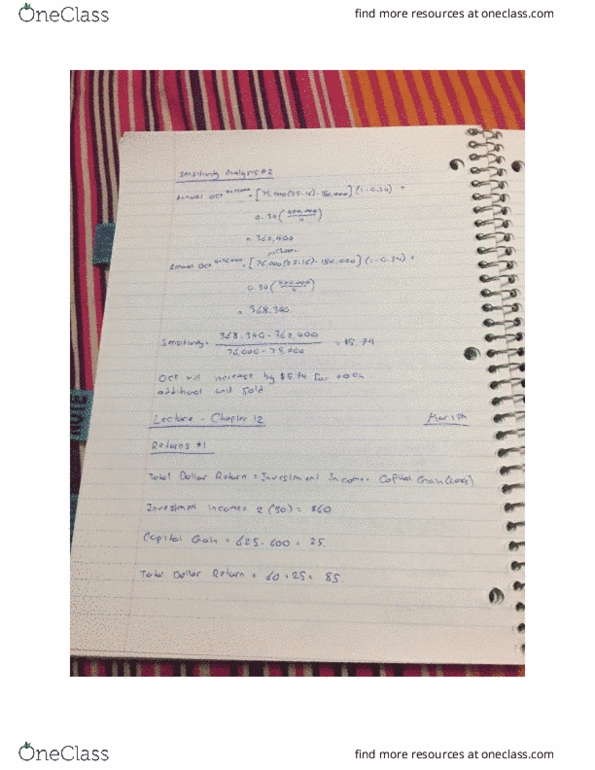 OneClass
find more resources at oneclass.com
Sensitivity Analysis #2
Annual OCF = [75,000(25-16)-150,000](1-0.34) +
0.34
= 362,400
Annual OCF = [76,000(25-16)-150,000](1-0.34) +
0.34
= 368.340
Sensitivity = 368.340-362,400 = $5.94
76,000-75,000
OCF will increase by $5.94 for each
additional unit sold
Lecture - Chapter 12
Returns #1
Total Dollar Return = Investment Income + Capital Gain (Loss)
Investment Income = 2 (30) = $60
Capital Gain = 625 - 600 = 25
Total Dollar Return = 60 + 25 = 85
OneClass
find more resources at oneclass.com